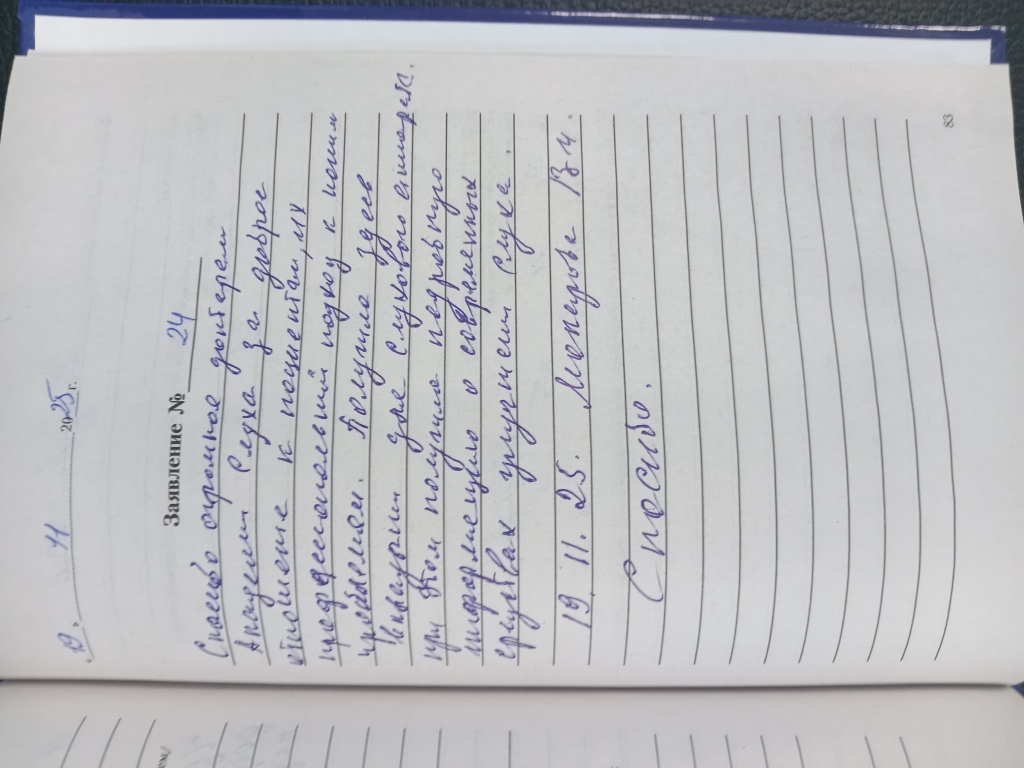 19. 11 2025 г.
Заявление № 24
Спасибо огромное докторам
Академии Слуха за доброе
отношение к пациентам, их
профессиональный подход к нашим
проблемам. Получила здесь
два слухового аппарата.
при этом получила подробную
информацию о современных
средствах улучшения слуха.
19. 11. 25. В. И.
Спасибо.
83